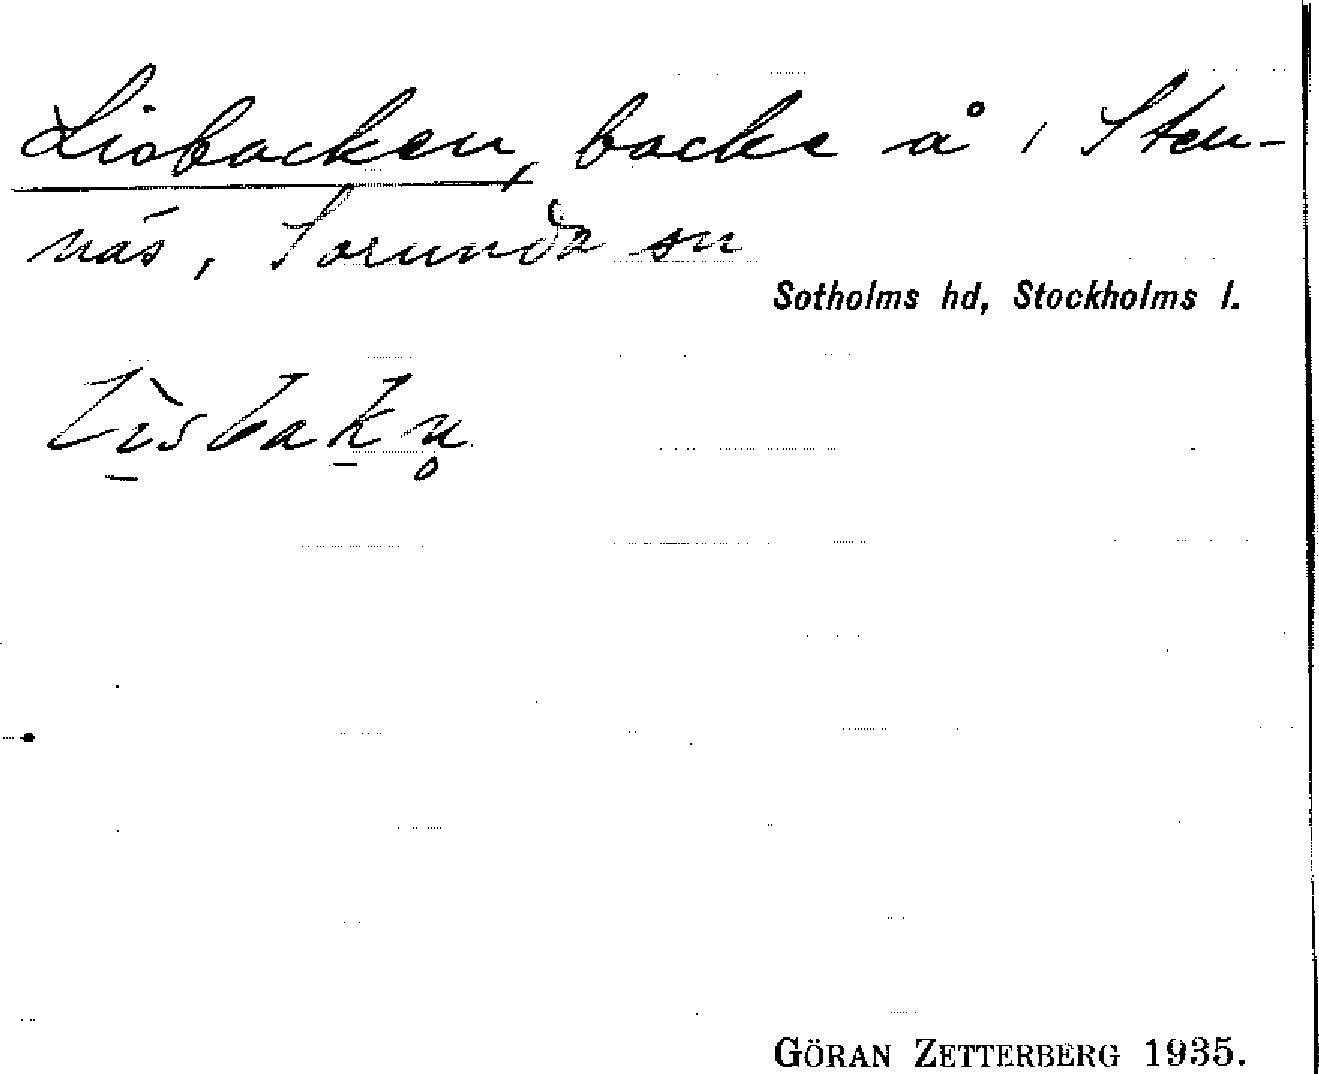 Lisbacken, backe å i Sten-
näs, Sorunda sn
Sotholms hd, Stockholms l.
GÖRAN ZETTERBERG 1935.